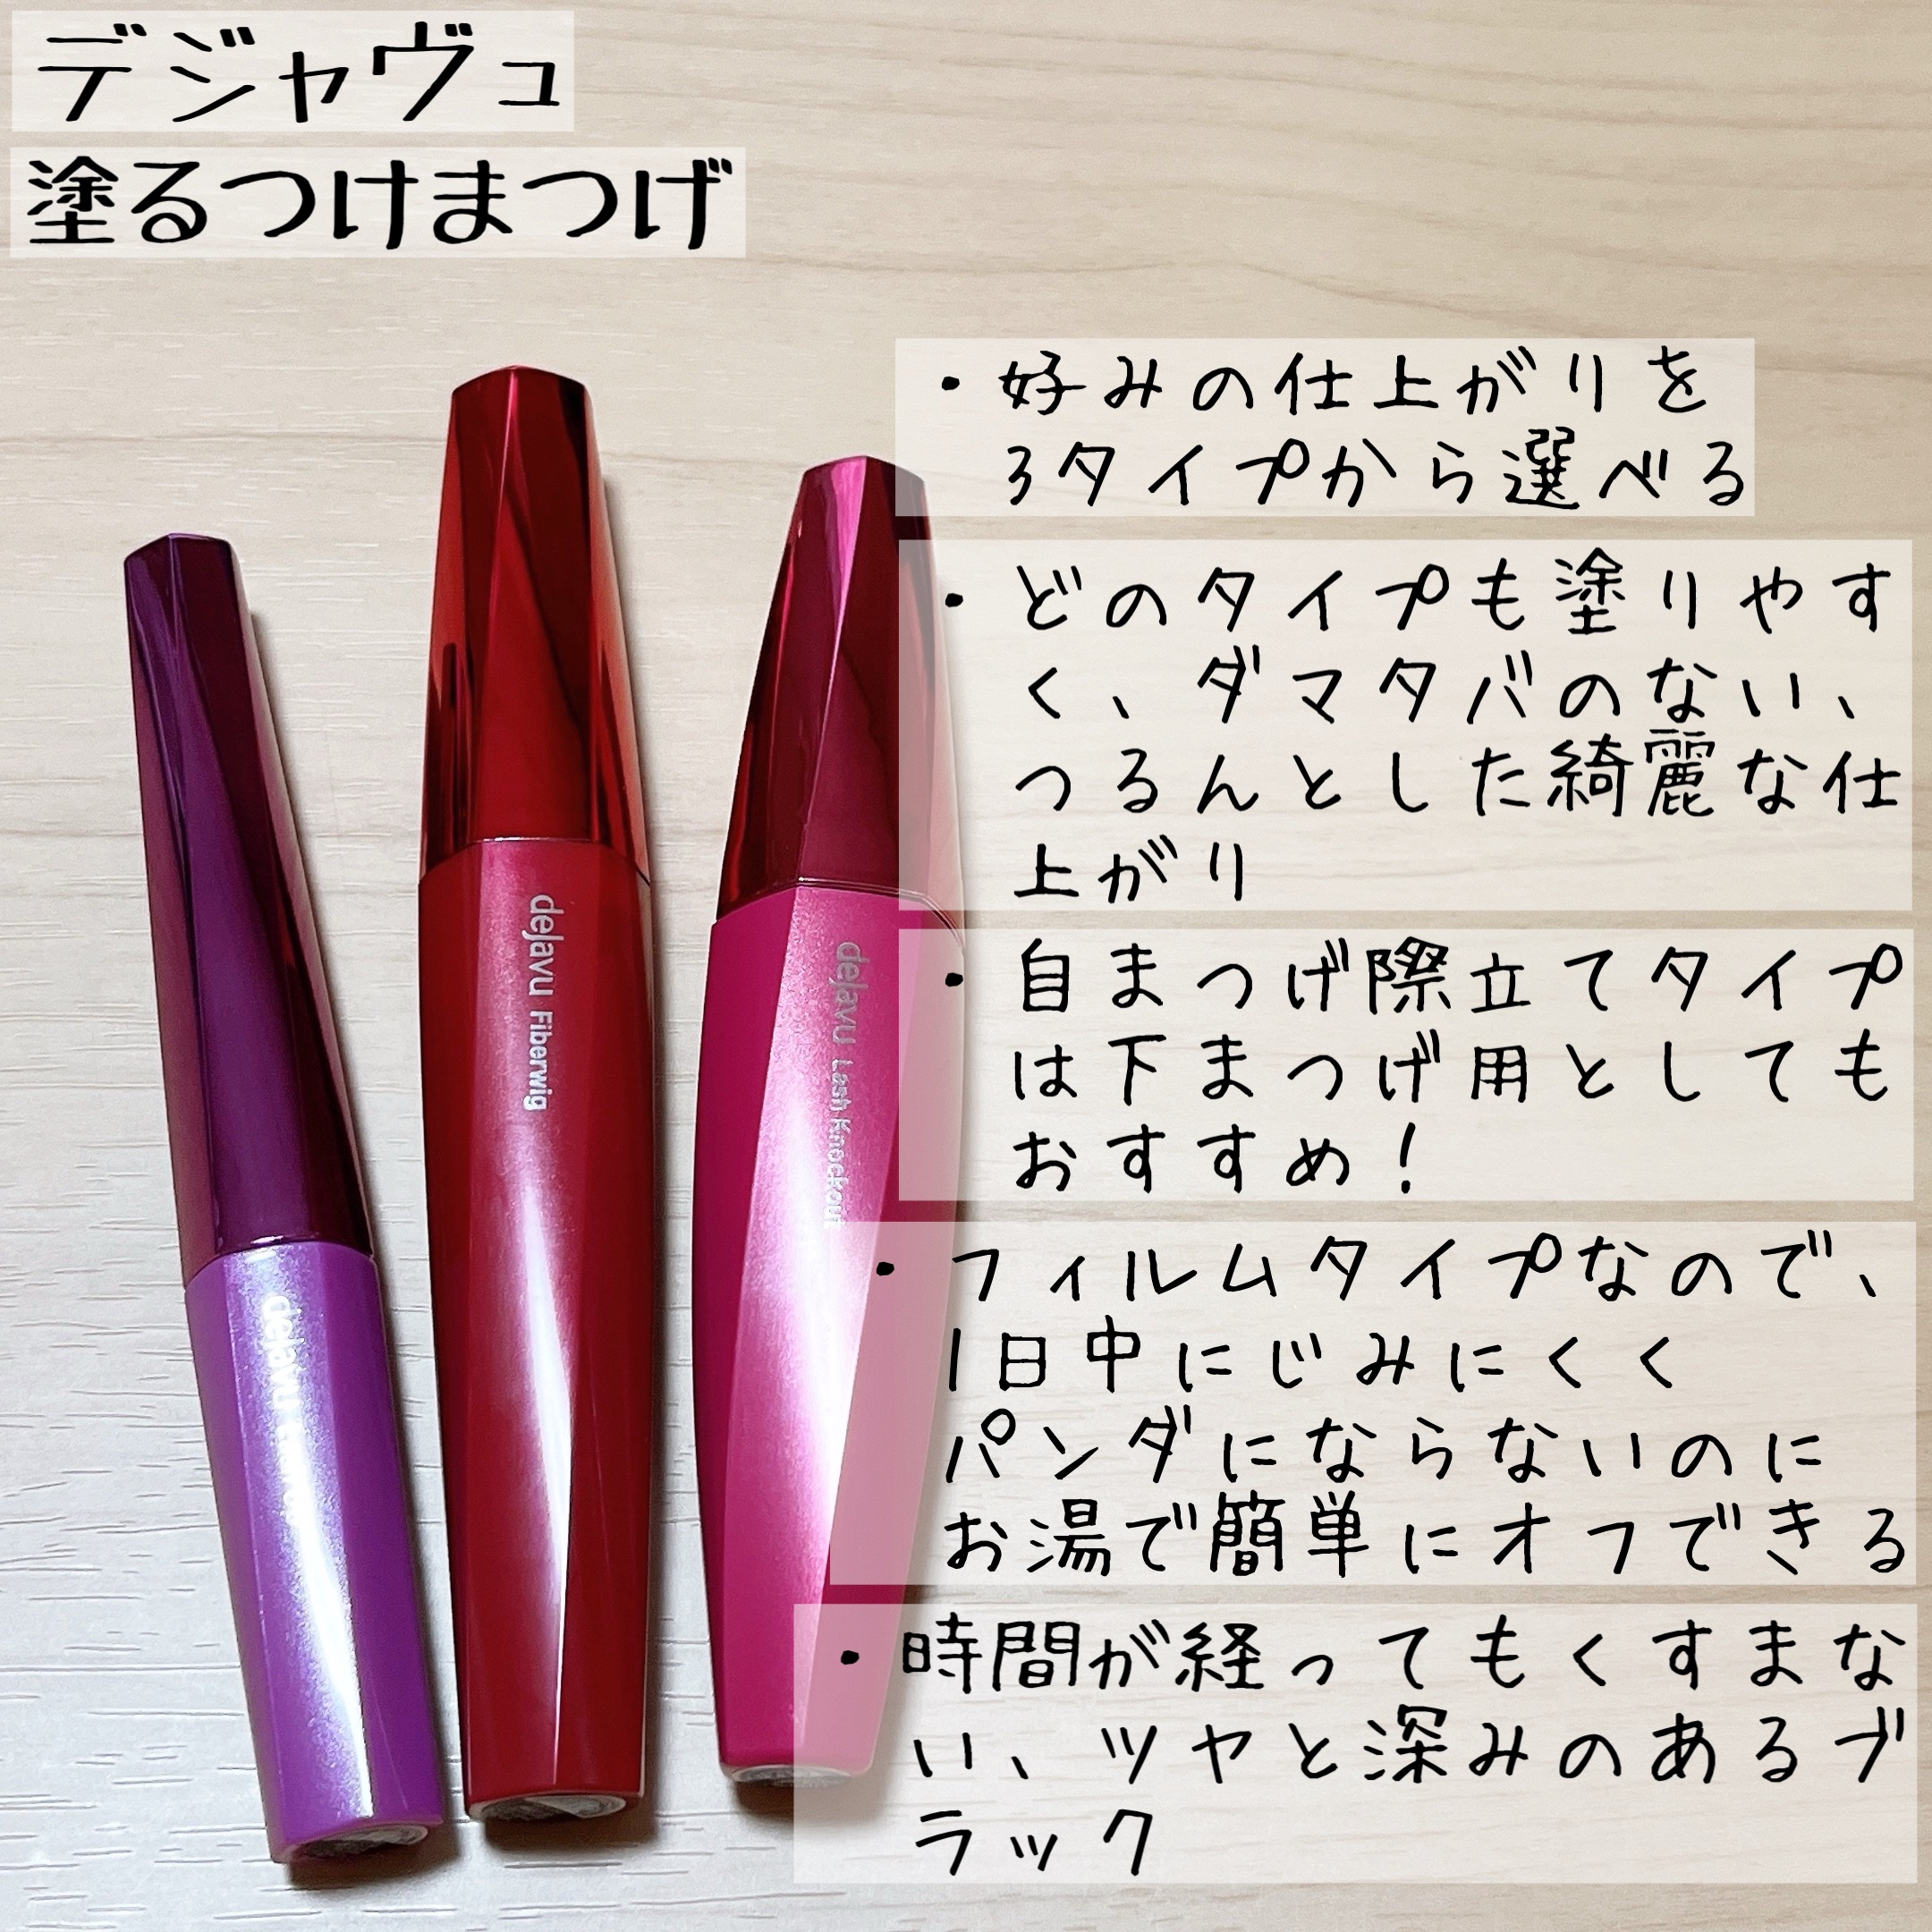 デジャヴュ
塗るつけまつげ
・好みの仕上がりを
3タイプから選べる
・どのタイプも塗りやす
く、ダマタバのない、
つるんとした綺麗な仕
上がり
・自まつげ際立てタイプ
は下まつげ用としても
おすすめ！
・フィルムタイプなので、
1日中にじみにくく
パンダにならないのに
お湯で簡単にオフできる
・時間が経ってもくすまな
い、ツヤと深みのあるブ
ラック
dejavu Fiberwig
dejavu Lash Knockout
dejavu